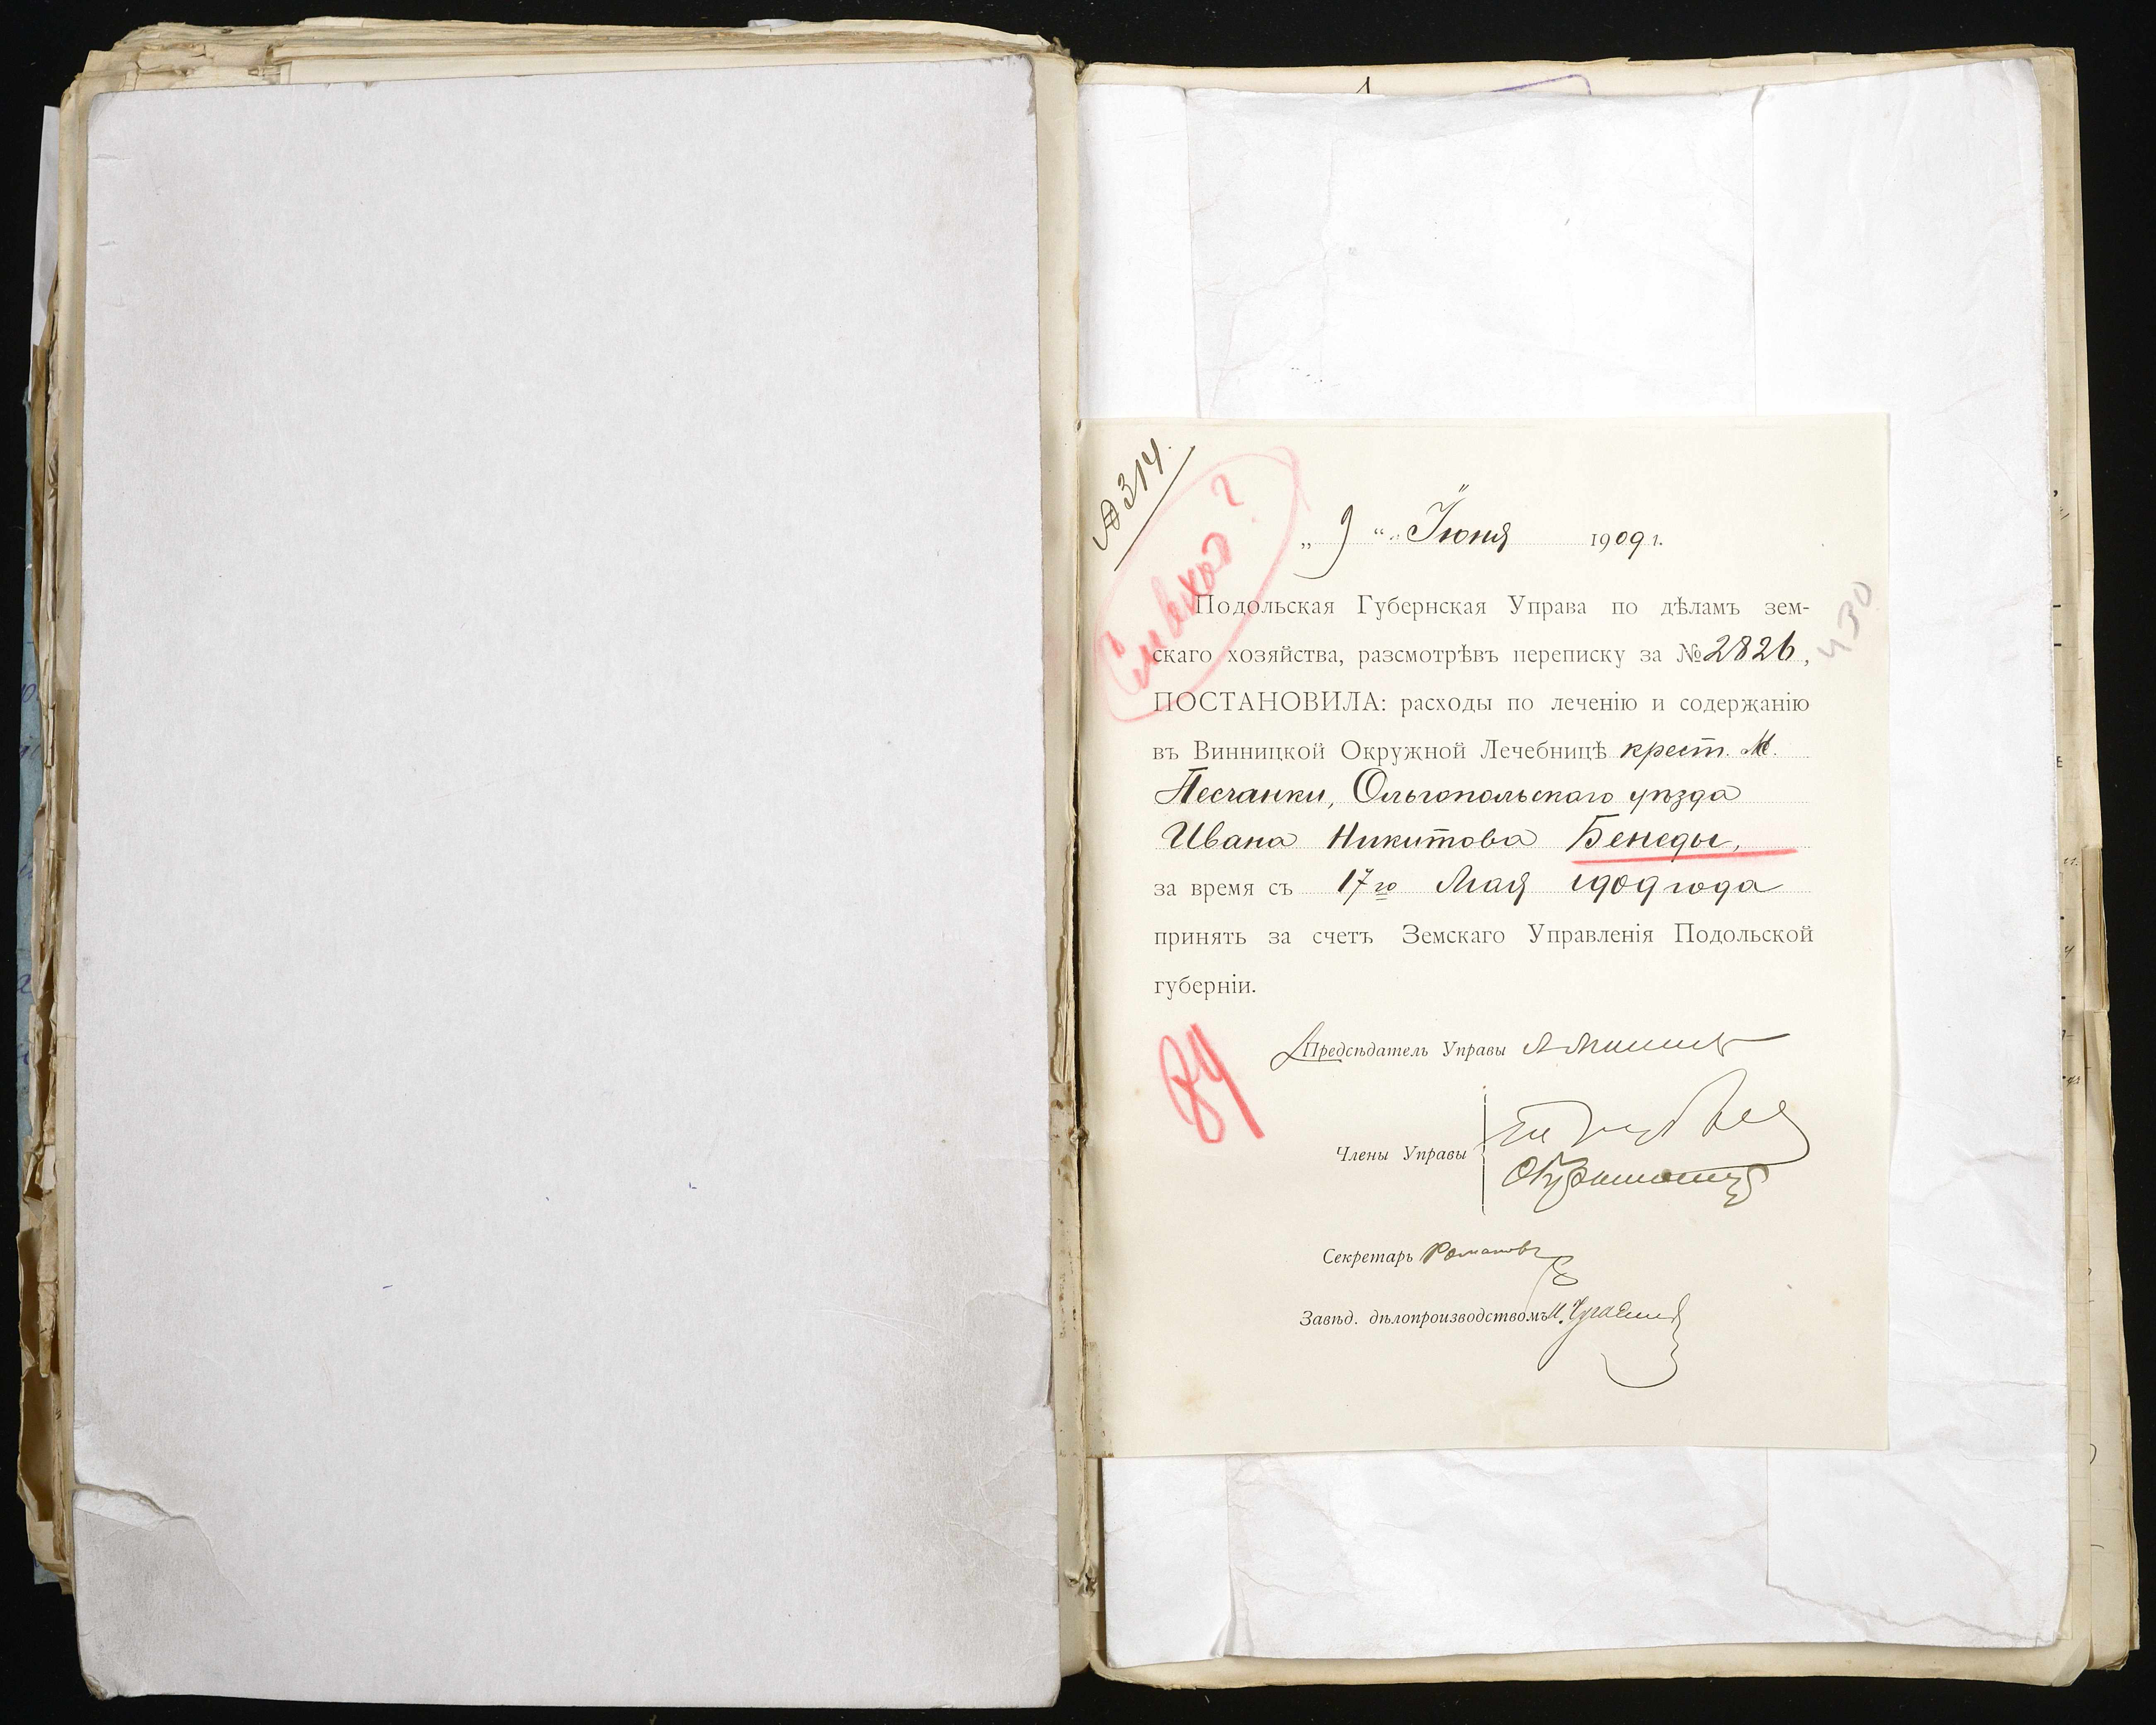 314.
„ 9 “ Іюня 1909 г.
Подольская Губернская Управа по дѣламъ зем-
430
скаго хозяйства, разсмотрѣвъ переписку за № 2826,
ПОСТАНОВИЛА: расходы по леченію и содержанію
въ Винницкой Окружной Лечебницѣ крест. М.
Песчанки, Ольгопольскаго уѣзда
Ивана Никитова Бенеды,
за время съ 17го Мая 1909 года
принять за счетъ Земскаго Управленія Подольской
губерніи.
84
Предсѣдатель Управы
Члены Управы
Секретарь Романовъ
Завѣд. дѣлопроизводствомъ